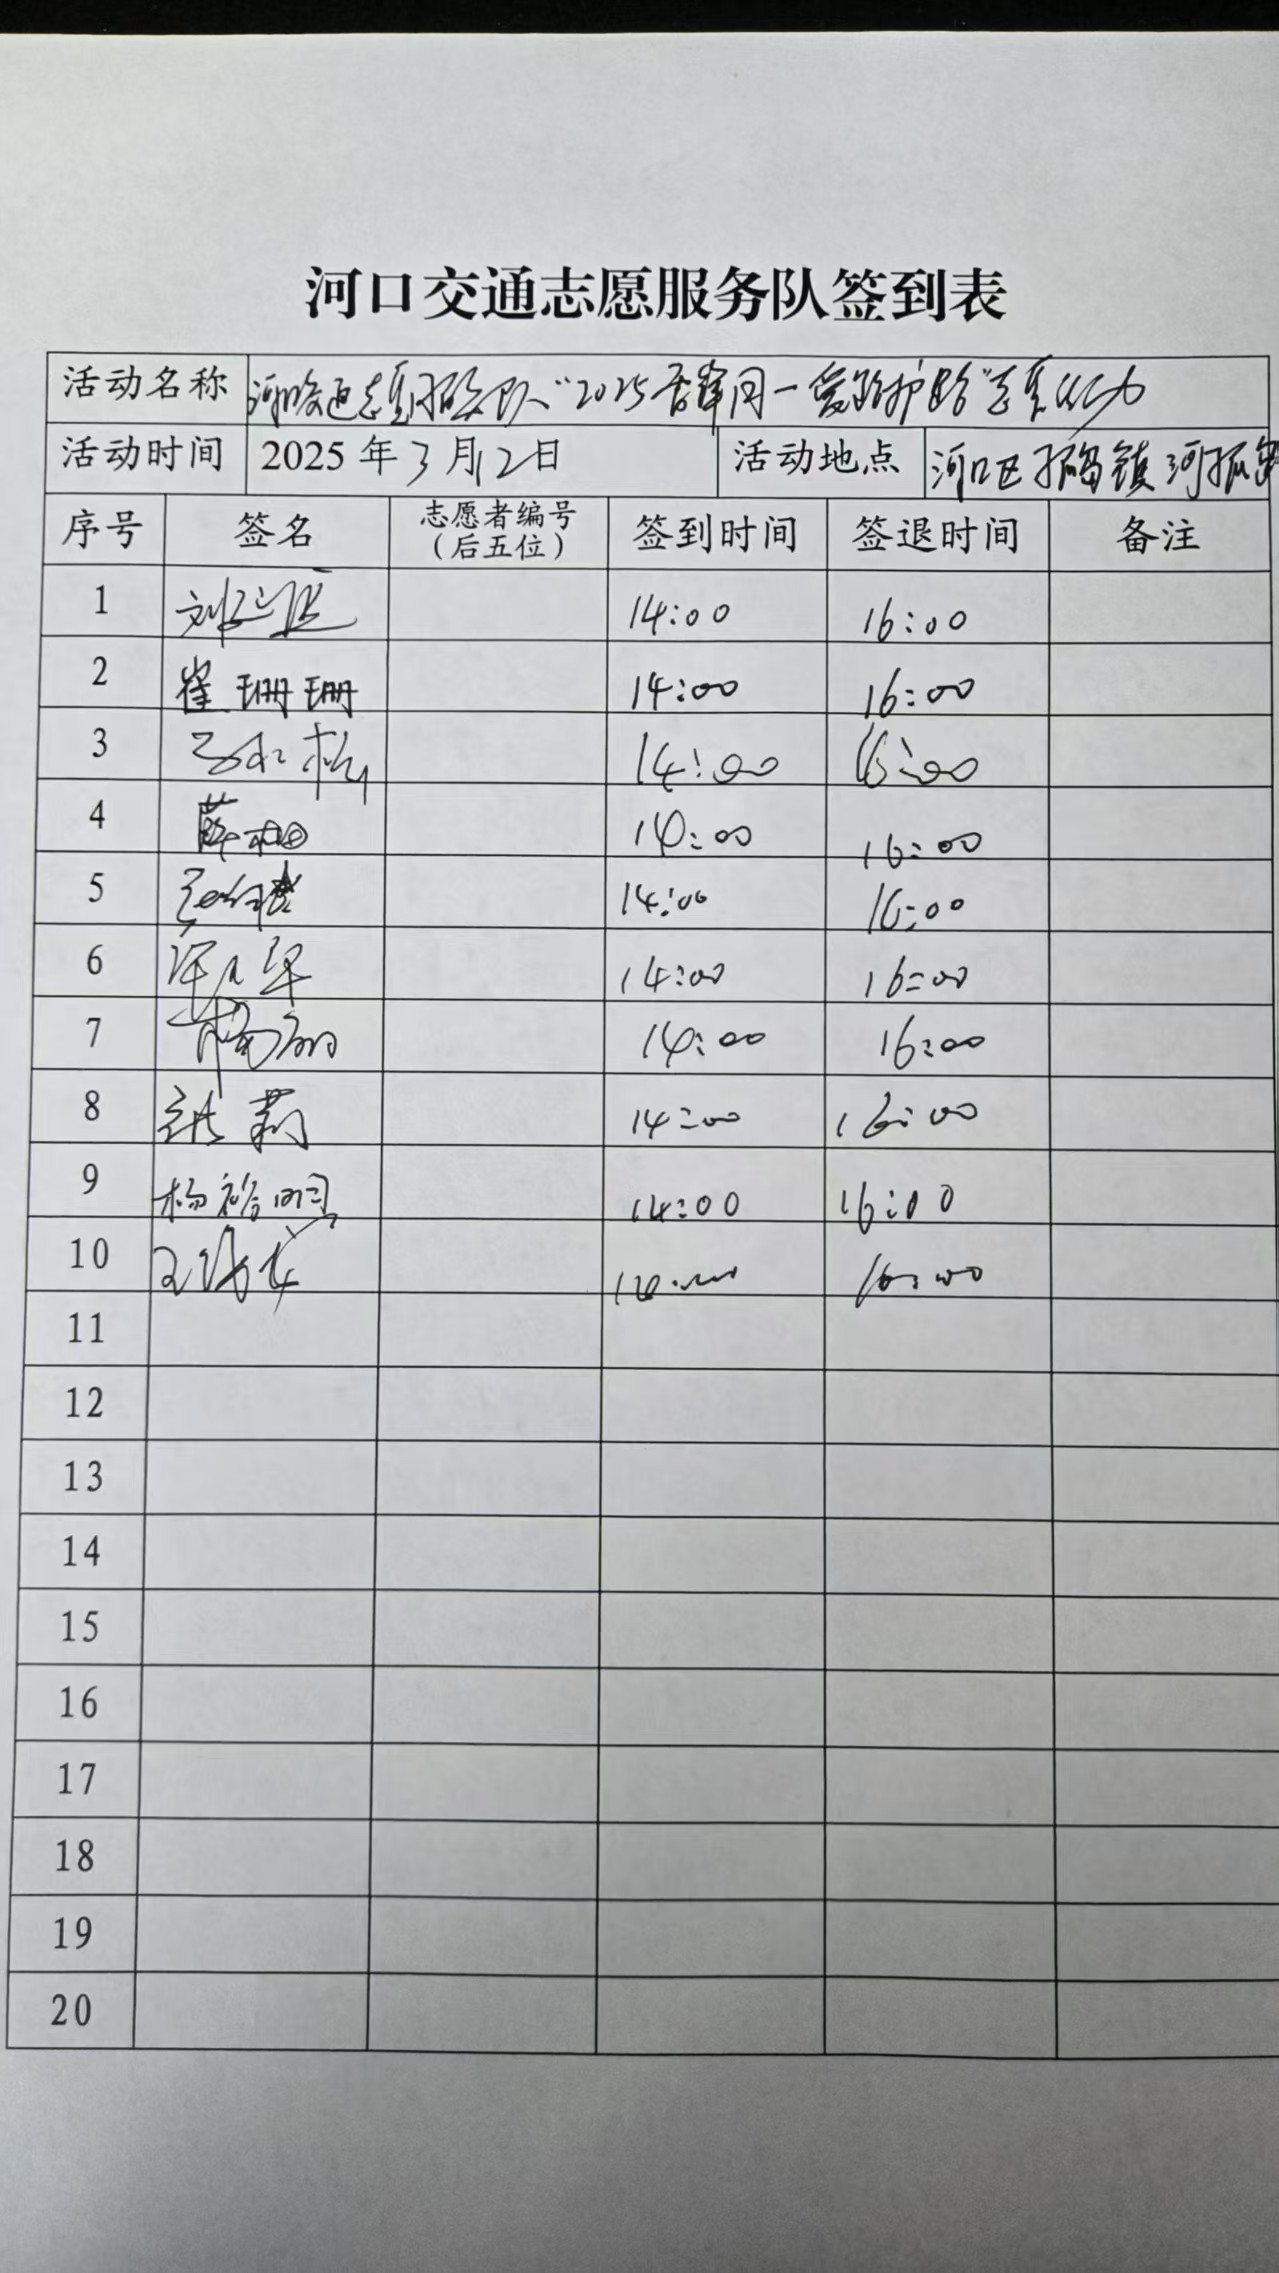 河口交通志愿服务队签到表
活动名称 河口交通志愿服务队“2025 爱路护路”志愿活动
活动时间 2025年3月12日 活动地点 河口区孤岛镇河孤路
序号 签名 志愿者编号（后五位） 签到时间 签退时间 备注
1 14:00 16:00
2 崔珊珊 14:00 16:00
3 14:00 16:00
4 薛 14:00 16:00
5 14:00 16:00
6 14:00 16:00
7 杨丽 14:00 16:00
8 莉 14:00 16:00
9 杨 14:00 16:00
10 16:00
11
12
13
14
15
16
17
18
19
20